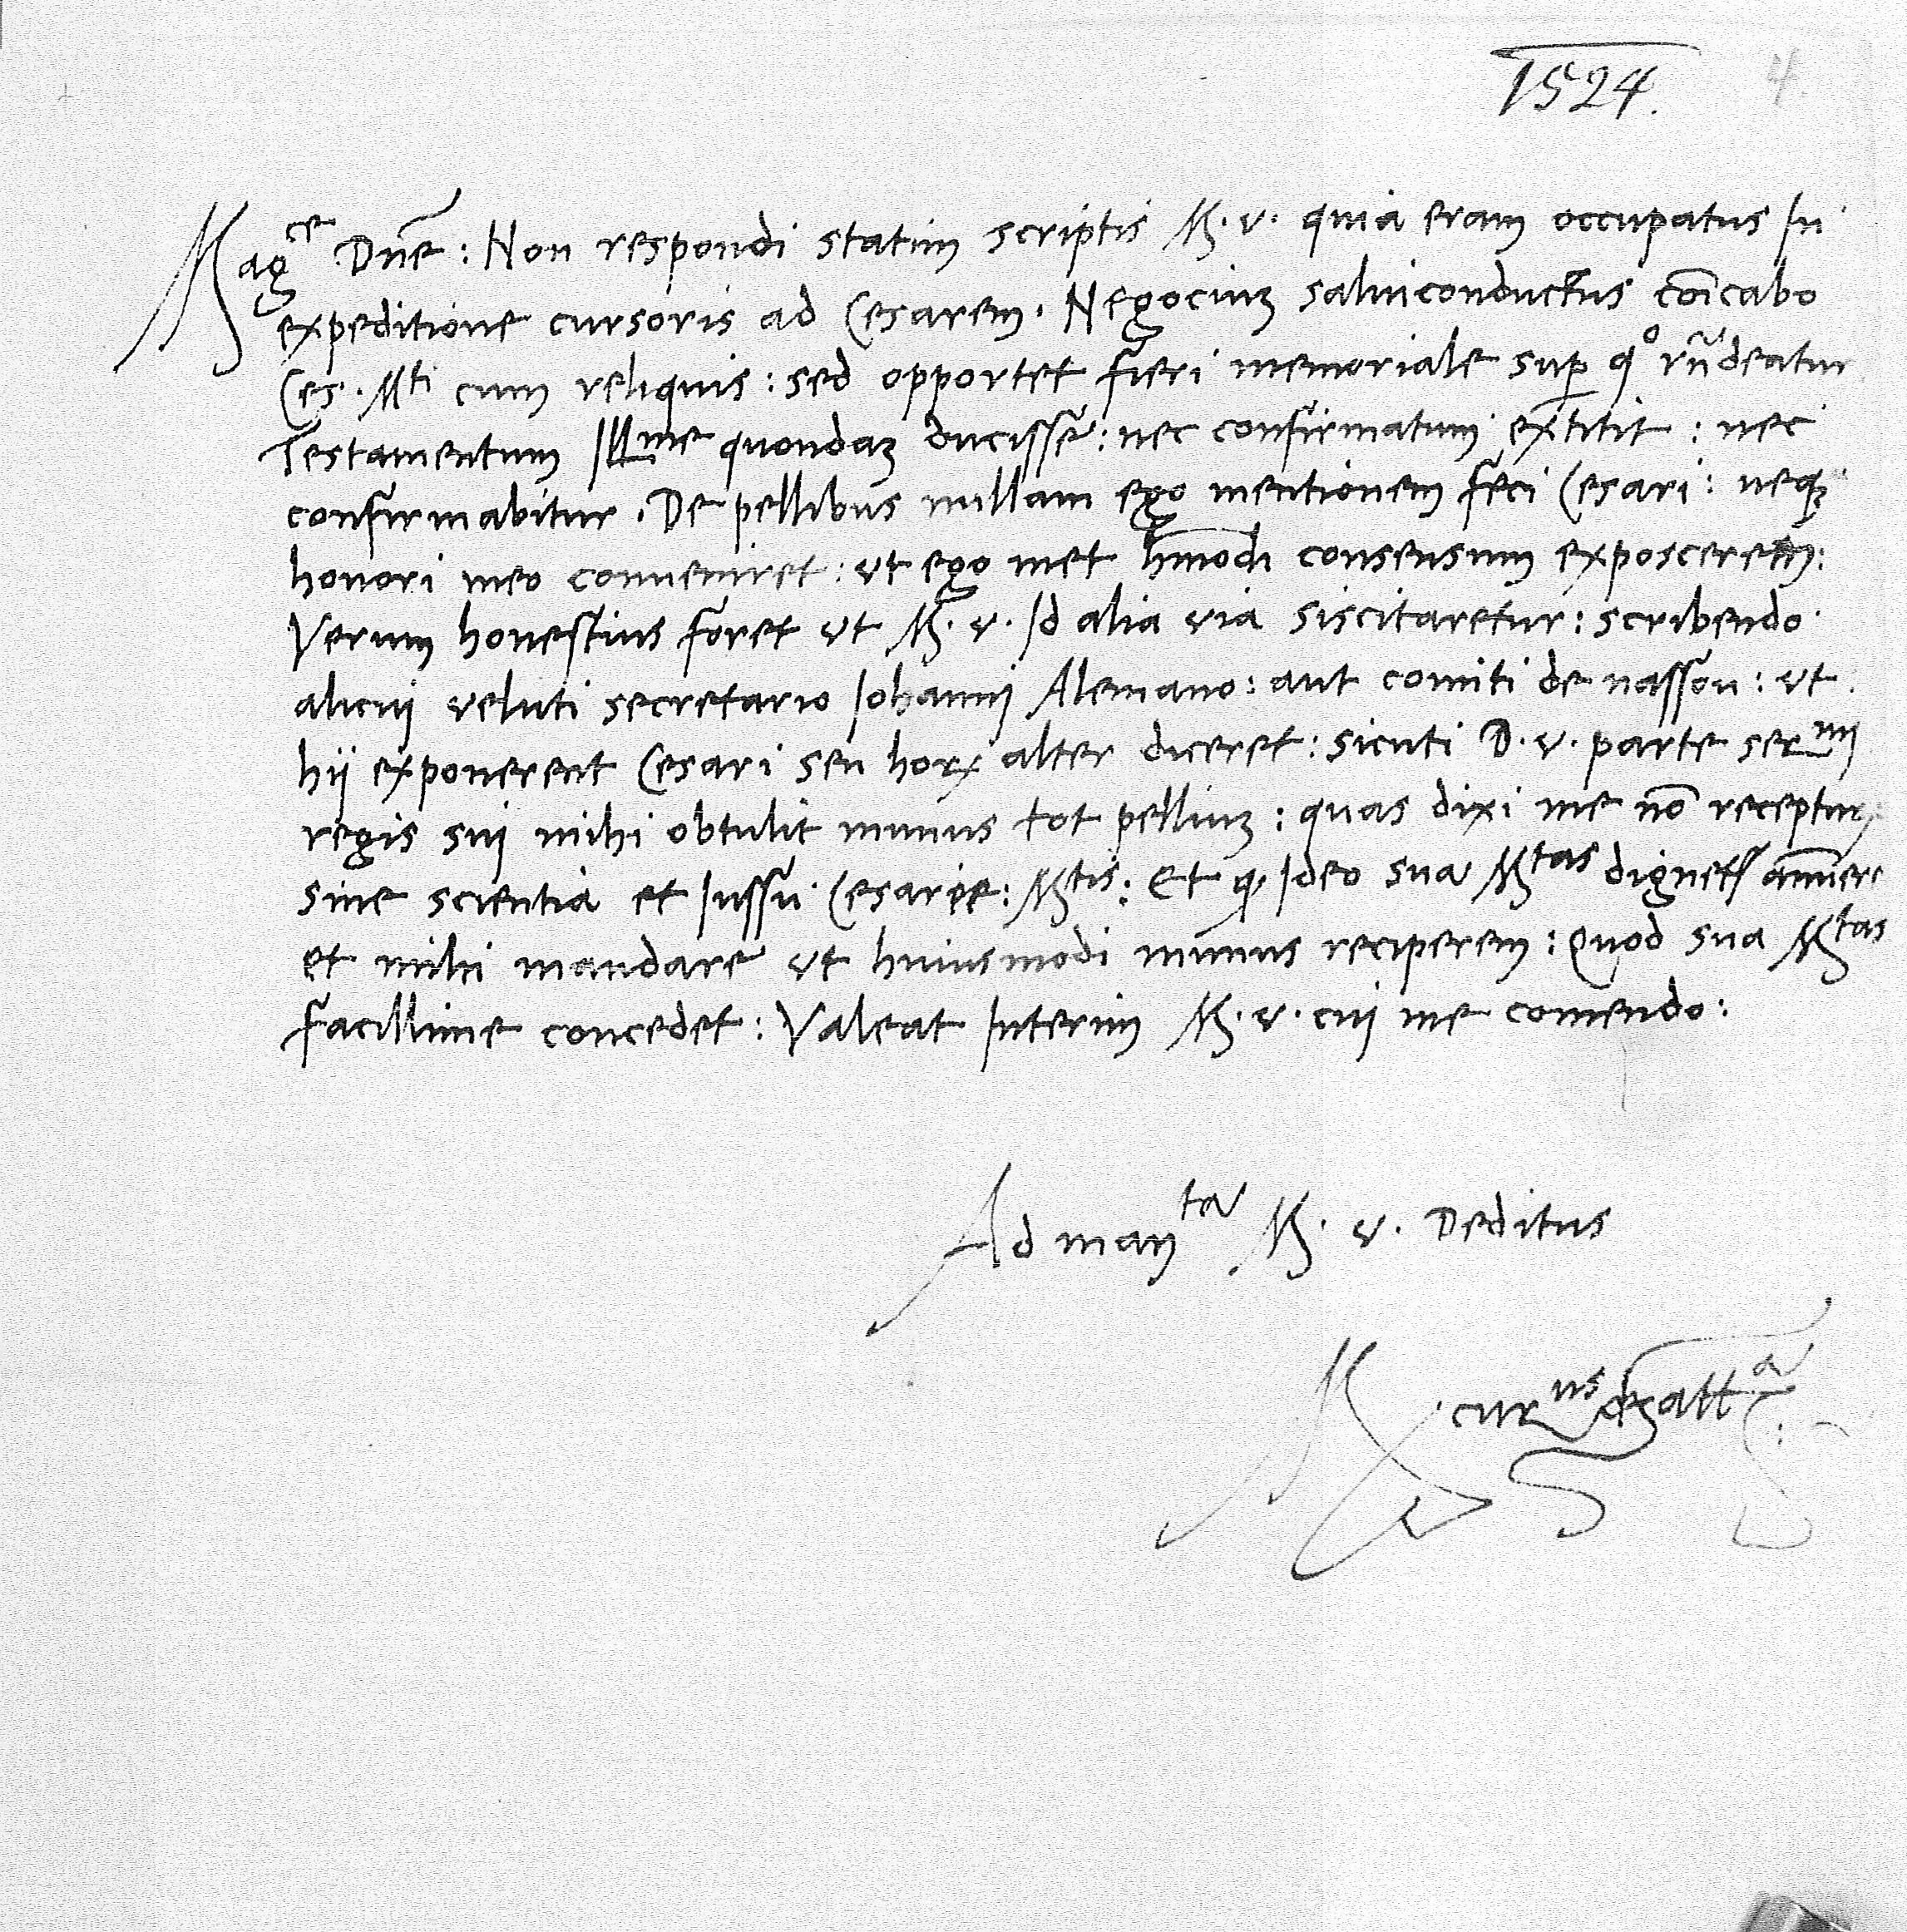 1524. 4.
Mag^ce Dne: Non respondi statim scriptis M. v. quia eram occupatus In
expeditione cursoris ad Cesarem. Negociuz salviconductus coicabo
Ces. M^ti cum reliquis: sed opportet fieri memoriale sup q^o rndeatur
Testamentum Ill^me quondaz ducisse: nec confirmatum extitit: nec
confirmabitur. De pellibus nullam ego mentionem feci Cesari: neq;
honori meo conveniret: vt ego met hmodi consensum exposcerem:
Verum honestius foret vt M. v. Id alia via siscitaretur: scribendo
alicuj veluti secretario Iohannj Alemano: aut comiti de nassou: vt
hij exponerent Cesari seu horx alter diceret: sicuti D. v. parte ser^mj
regis suj mihi obtulit munus tot pelliuz: quas dixi me no receptur
sine scientia et Iussu Cesaree: M^tis: Et q Ideo sua M^tas dignet annuere
et mihi mandare vt huiusmodi munus reciperem: Quod sua M^tas
facillime concedet: Valeat Interim M. v. cuj me comendo:
Ad man^ta M. v. Deditus
Mercur^us de gatt^a